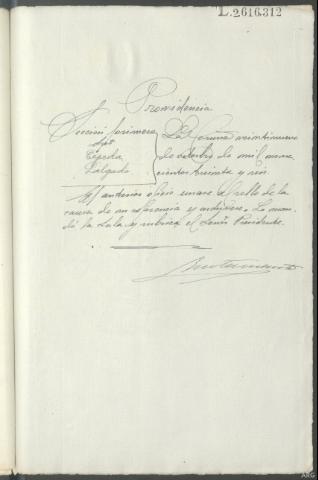 L.2616.312
Providencia
Sección primera
Tejeda
Salgado
La Coruña veintinueve
de octubre de mil nove
cientos treinta y seis
El anterior oficio únase al rollo de la
causa de su referencia y archívese. Lo man
dó la Sala y rubrica el Señor Presidente.
ARG